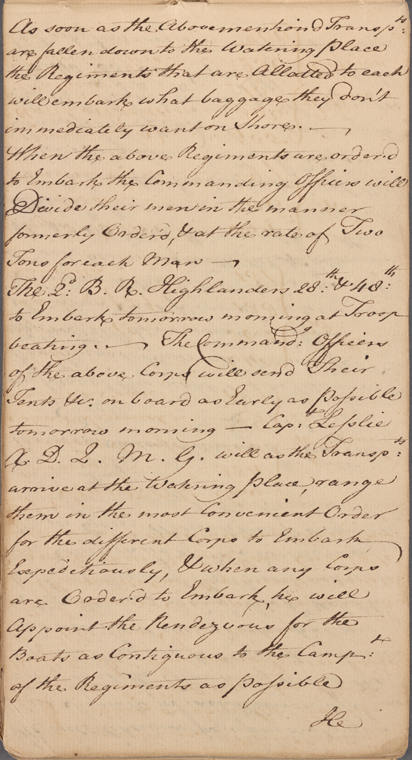 As soon as the Abovemention'd Transp:ts
are fallen down to the Watering place
the Regiments that are Allotted to each
will embark what baggage they don't
immediately want on Shore. —
When the above Regiments are order'd
to Embark the Commanding Officers will
Divide their men in the manner
formerly Order'd, & at the rate of Two
Tons for each Man —
The 2d: B. R. Highlanders 28:th & 48:th
to Embark tomorrow morning at Troop
beating. — The Command:g Officers
of the above Corps will send Their
Tents &c. on board as Early as possible
tomorrow morning — Cap:t Leslie
A. D. Q. M. G. will as the Transp:ts
arrive at the Watering place, range
them in the most Convenient Order
for the different Corps to Embark
Expeditiously, & when any Corps
are Order'd to Embark, he will
Appoint the Rendezvous for the
Boats as Contiguous to the Camp:t
of the Regiments as possible
He